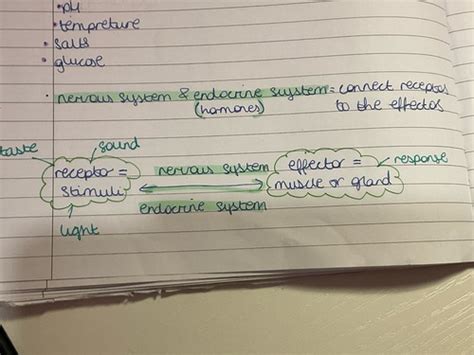 • pH
• tempreture
• salts
• glucose
• nervous system & endocrine system = connect receptos
(hormones) to the effectos
taste sound
receptor = nervous system effector = response
stimuli muscle or gland
endocrine system
light